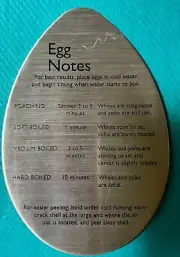 Egg
Notes
For best results, place eggs in cold water
and begin timing when water starts to boil.
POACHING Simmer 3 to 5 Whites are coagulated
minutes and yolks are still soft.
SOFT BOILED 1 minute Whites start to set,
yolks are barely heated.
MEDIUM BOILED Whites and yolks are
minutes starting to set and
center is slightly creamy.
HARD BOILED 10 minutes Whites and yolks
are solid.
For easier peeling, hold under cold running water
crack shell at the large end where the air
sac is located, and peel away shell.